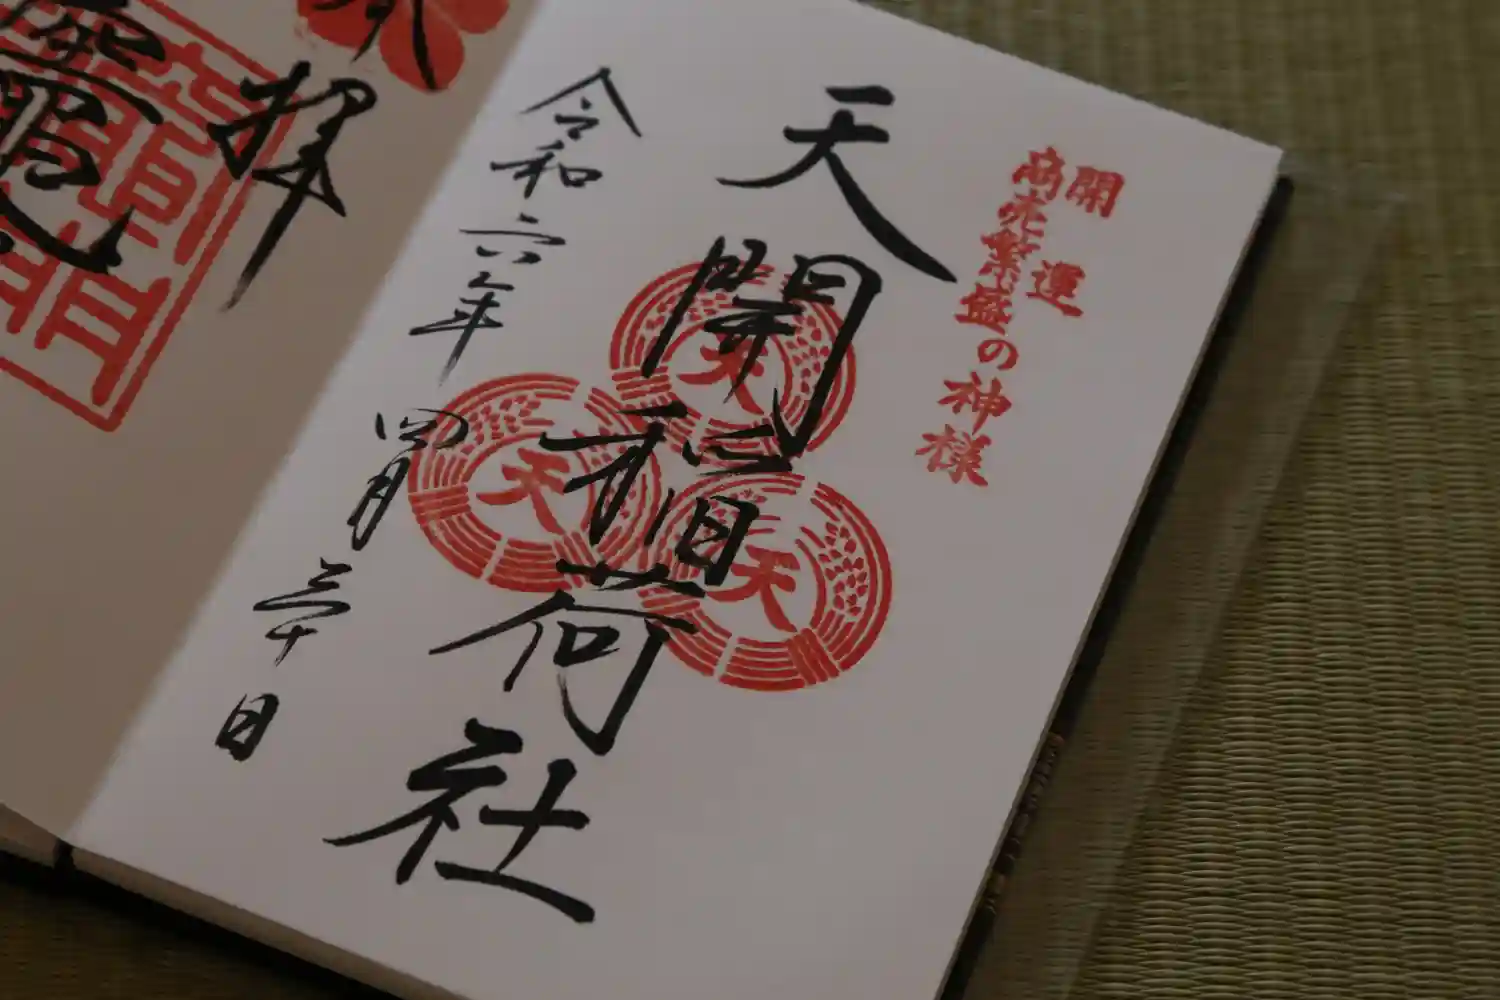 開運
商売繁盛の神様
天開稲荷社
天
天
天
令和六年四月三十日
拝